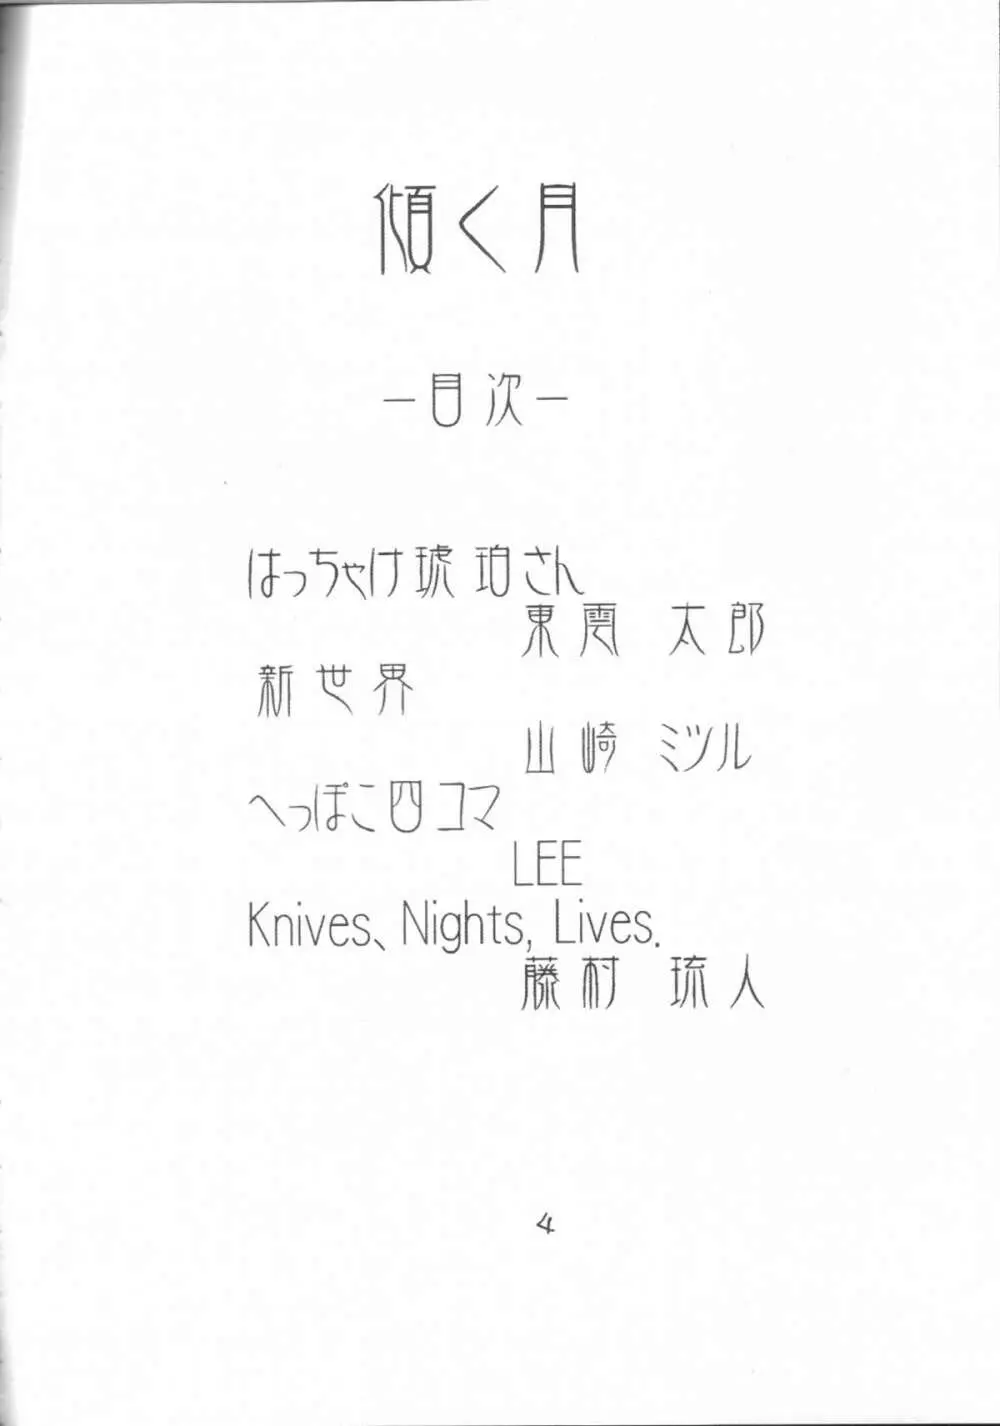 傾く月
－目次－
はっちゃけ琥珀さん
東雲 太郎
新世界
山崎 ミツル
へっぽこ四コマ
LEE
Knives、Nights, Lives.
藤村 琉人
4